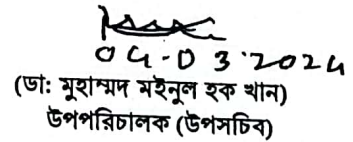 04-03-2024
(ডা: মুহাম্মদ মইনুল হক খান)
উপপরিচালক (উপসচিব)